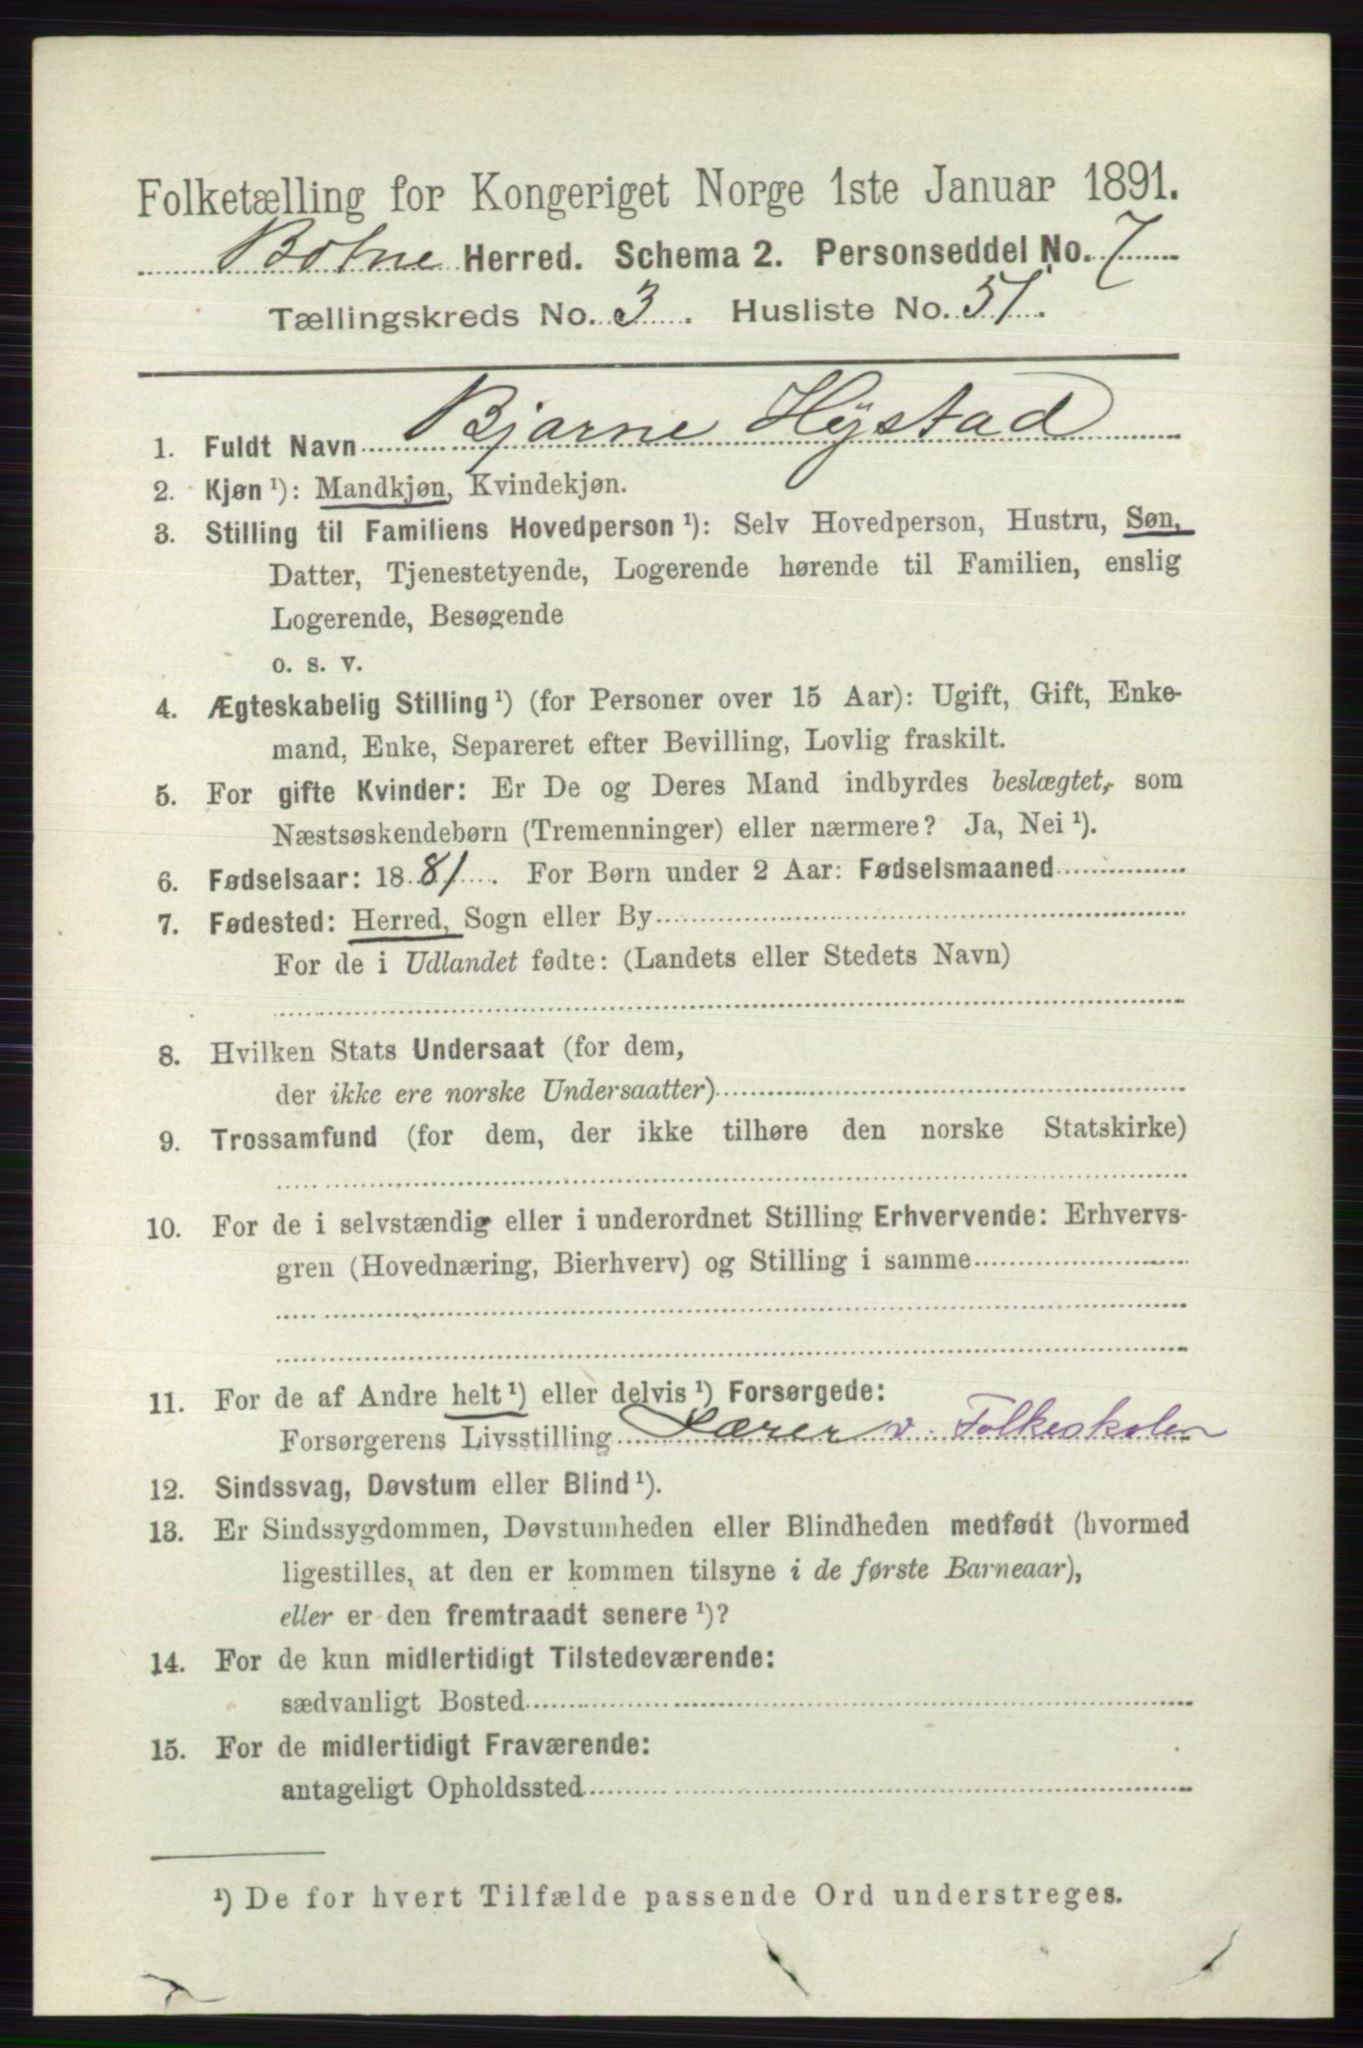 Folketælling for Kongeriget Norge 1ste Januar 1891.
Botne Herred. Schema 2. Personseddel No. 7
Tællingskreds No. 3. Husliste No. 51.
1. Fuldt Navn Bjarne Hystad
2. Kjøn ¹): Mandkjøn, Kvindekjøn.
3. Stilling til Familiens Hovedperson ¹): Selv Hovedperson, Hustru, Søn,
Datter, Tjenestetyende, Logerende hørende til Familien, enslig
Logerende, Besøgende
o. s. v.
4. Ægteskabelig Stilling ¹) (for Personer over 15 Aar): Ugift, Gift, Enke-
mand, Enke, Separeret efter Bevilling, Lovlig fraskilt.
5. For gifte Kvinder: Er De og Deres Mand indbyrdes beslægtet, som
Næstsøskendebørn (Tremenninger) eller nærmere? Ja, Nei ¹).
6. Fødselsaar: 1881. For Børn under 2 Aar: Fødselsmaaned
7. Fødested: Herred, Sogn eller By
For de i Udlandet fødte: (Landets eller Stedets Navn)
8. Hvilken Stats Undersaat (for dem,
der ikke ere norske Undersaatter)
9. Trossamfund (for dem, der ikke tilhøre den norske Statskirke)
10. For de i selvstændig eller i underordnet Stilling Erhvervende: Erhvervs-
gren (Hovednæring, Bierhverv) og Stilling i samme
11. For de af Andre helt ¹) eller delvis ¹) Forsørgede:
Forsørgerens Livsstilling Lærer v. Folkeskolen
12. Sindssvag, Døvstum eller Blind ¹).
13. Er Sindssygdommen, Døvstumheden eller Blindheden medfødt (hvormed
ligestilles, at den er kommen tilsyne i de første Barneaar),
eller er den fremtraadt senere ¹)?
14. For de kun midlertidigt Tilstedeværende:
sædvanligt Bosted
15. For de midlertidigt Fraværende:
antageligt Opholdssted
¹) De for hvert Tilfælde passende Ord understreges.